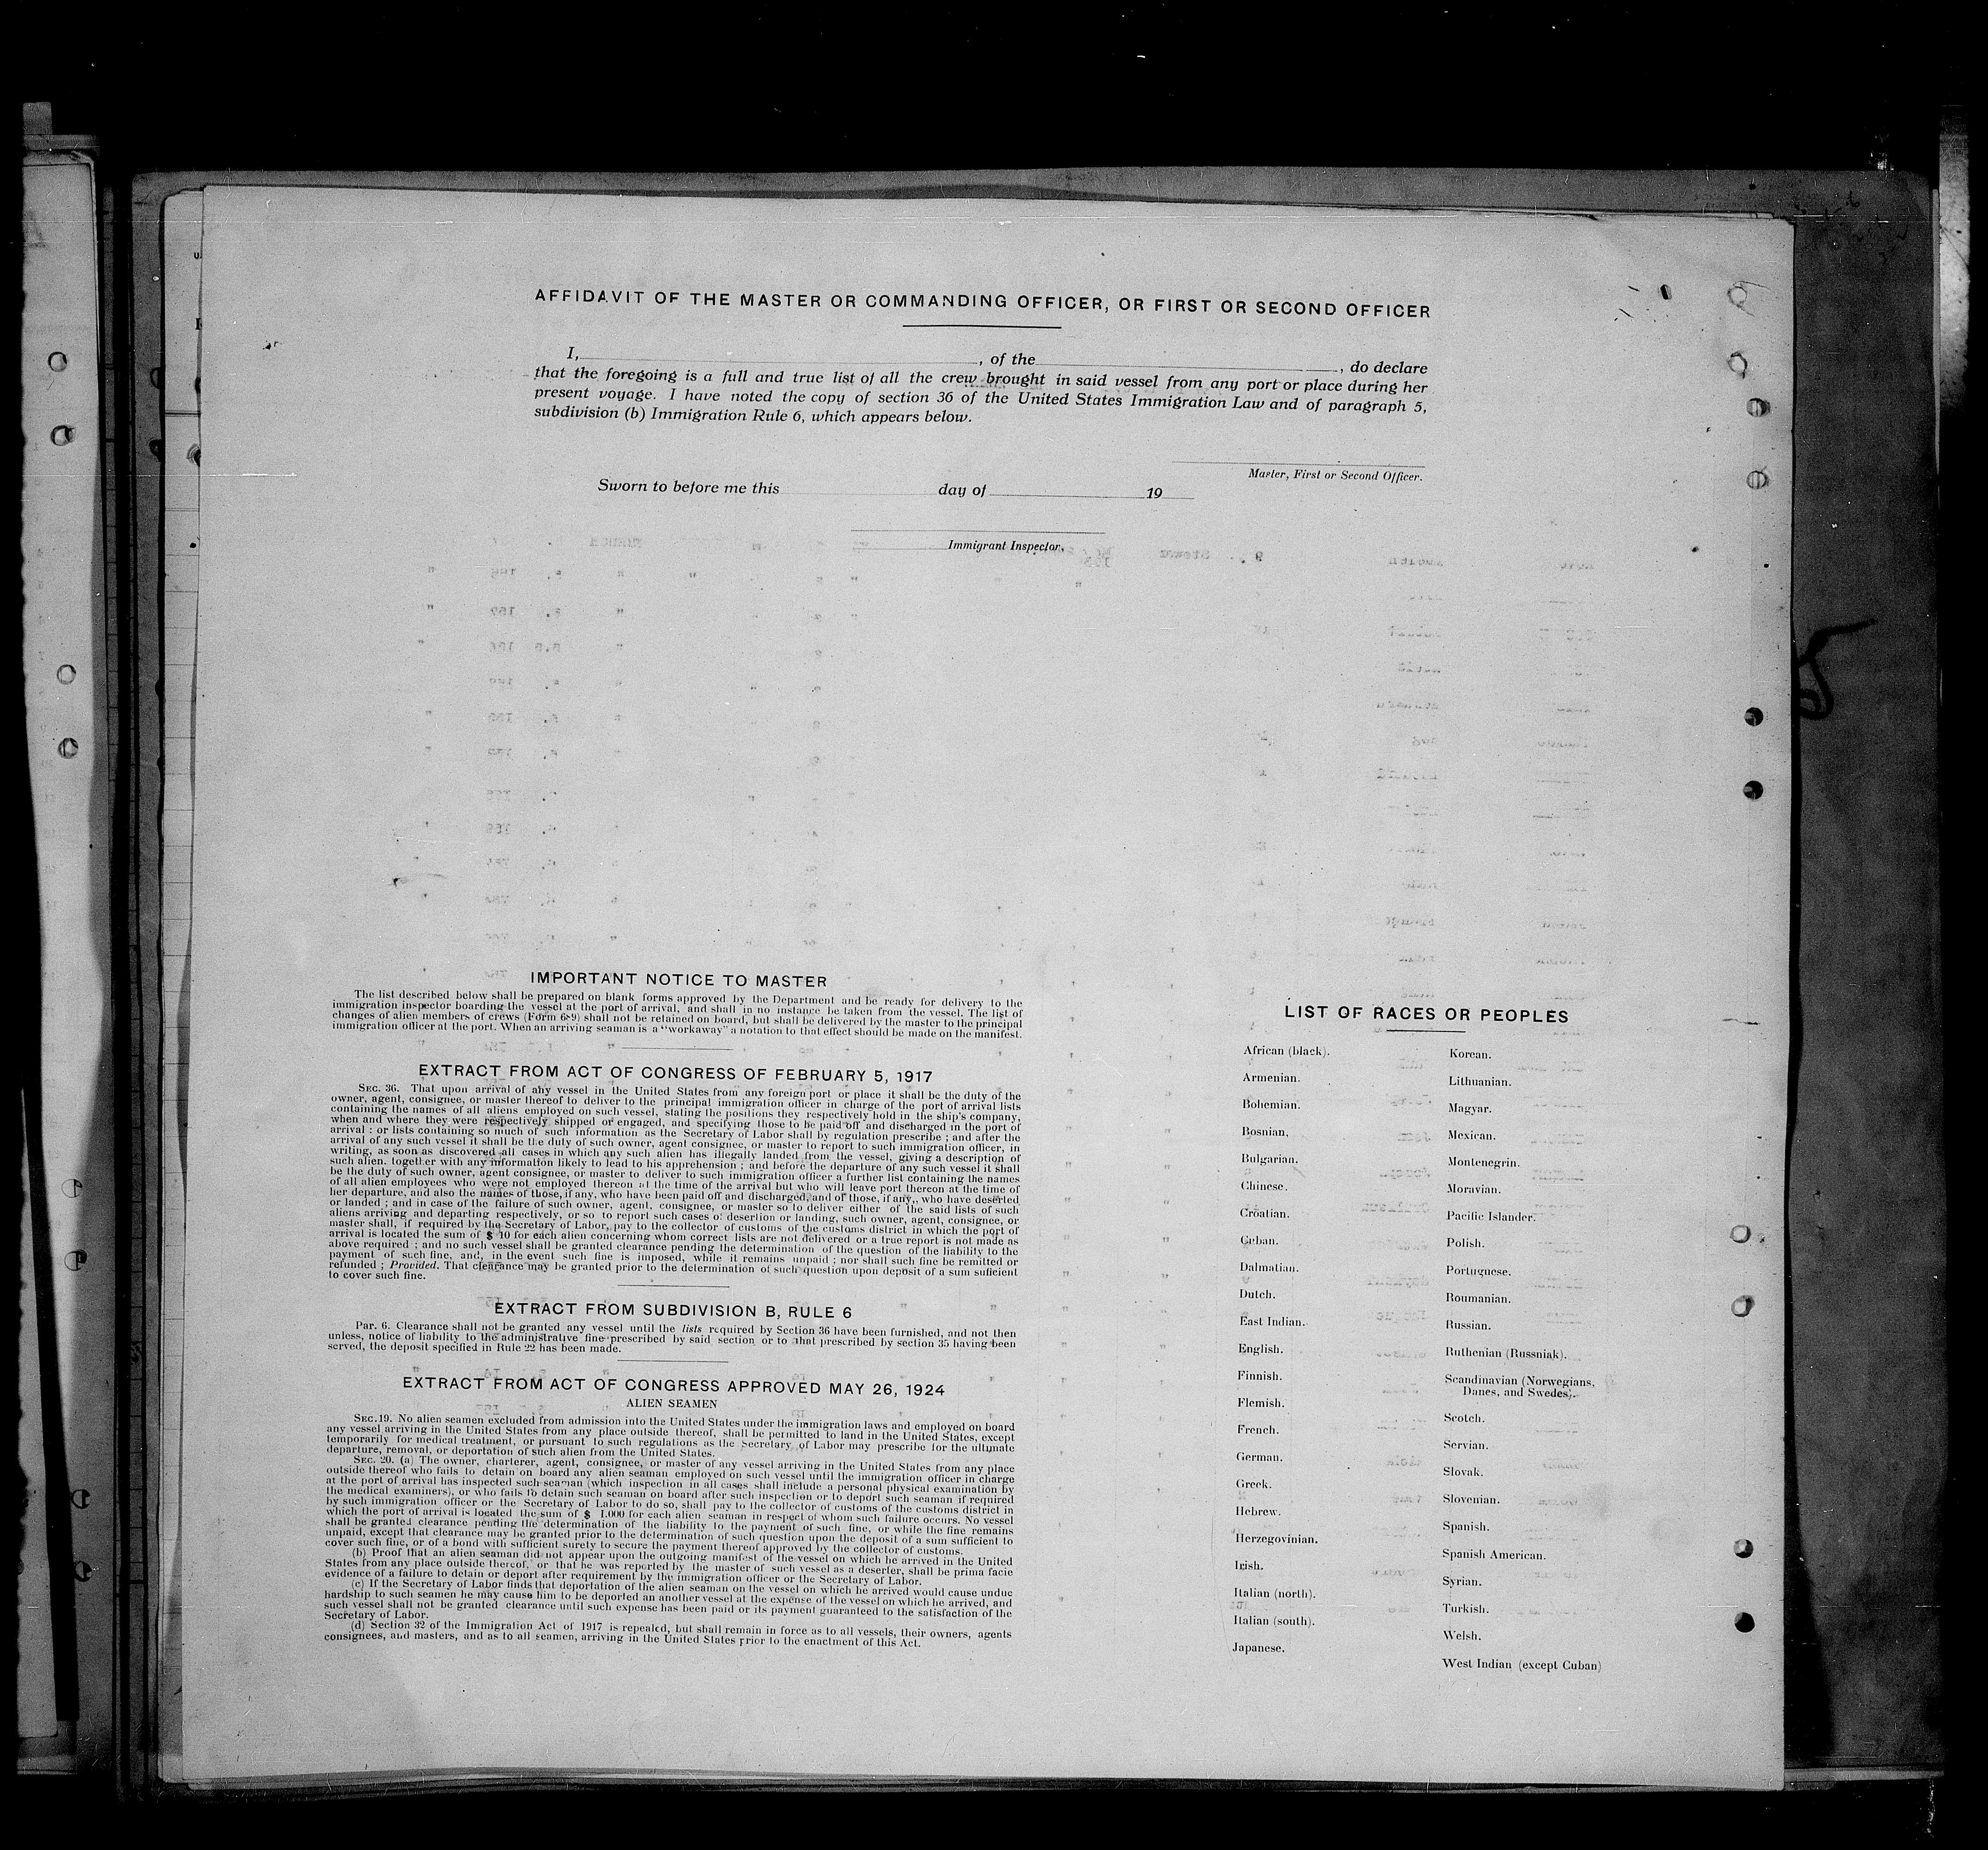 AFFIDAVIT OF THE MASTER OR COMMANDING OFFICER, OR FIRST OR SECOND OFFICER
I, , of the , do declare
that the foregoing is a full and true list of all the crew brought in said vessel from any port or place during her
present voyage. I have noted the copy of section 36 of the United States Immigration Law and of paragraph 5,
subdivision (b) Immigration Rule 6, which appears below.
Master, First or Second Officer.
Sworn to before me this day of 19
Immigrant Inspector.
IMPORTANT NOTICE TO MASTER
The list described below shall be prepared on blank forms approved by the Department and be ready for delivery to the
immigration inspector boarding the vessel at the port of arrival, and shall in no instance be taken from the vessel. The list of
changes of alien members of crews (Form 689) shall not be retained on board, but shall be delivered by the master to the principal
immigration officer at the port. When an arriving seaman is a "workaway" a notation to that effect should be made on the manifest.
EXTRACT FROM ACT OF CONGRESS OF FEBRUARY 5, 1917
SEC. 36. That upon arrival of any vessel in the United States from any foreign port or place it shall be the duty of the
owner, agent, consignee, or master thereof to deliver to the principal immigration officer in charge of the port of arrival lists
containing the names of all aliens employed on such vessel, stating the positions they respectively hold in the ship's company,
when and where they were respectively shipped or engaged, and specifying those to be paid off and discharged in the port of
arrival : or lists containing so much of such information as the Secretary of Labor shall by regulation prescribe ; and after the
arrival of any such vessel it shall be the duty of such owner, agent consignee, or master to report to such immigration officer, in
writing, as soon as discovered all cases in which any such alien has illegally landed from the vessel, giving a description of
such alien. together with any information likely to lead to his apprehension ; and before the departure of any such vessel it shall
be the duty of such owner, agent consignee, or master to deliver to such immigration officer a further list containing the names
of all alien employees who were not employed thereon at the time of the arrival but who will leave port thereon at the time of
her departure, and also the names of those, if any, who have been paid off and discharged, and of those, if any,, who have deserted
or landed ; and in case of the failure of such owner, agent, consignee, or master so to deliver either of the said lists of such
aliens arriving and departing respectively, or so to report such cases of desertion or landing, such owner, agent, consignee, or
master shall, if required by the Secretary of Labor, pay to the collector of customs of the customs district in which the port of
arrival is located the sum of $ 10 for each alien concerning whom correct lists are not delivered or a true report is not made as
above required ; and no such vessel shall be granted clearance pending the determination of the question of the liability to the
payment of such fine, and, in the event such fine is imposed, while it remains unpaid ; nor shall such fine be remitted or
refunded ; Provided. That clearance may be granted prior to the determination of such question upon deposit of a sum suficient
to cover such fine.
EXTRACT FROM SUBDIVISION B, RULE 6
Par. 6. Clearance shall not be granted any vessel until the lists required by Section 36 have been furnished, and not then
unless, notice of liability to the administrative fine prescribed by said section or to that prescribed by section 35 having been
served, the deposit specified in Rule 22 has been made.
EXTRACT FROM ACT OF CONGRESS APPROVED MAY 26, 1924
ALIEN SEAMEN
SEC. 19. No alien seamen excluded from admission into the United States under the immigration laws and employed on board
any vessel arriving in the United States from any place outside thereof, shall be permitted to land in the United States, except
temporarily for medical treatment, or pursuant to such regulations as the Secretary of Labor may prescribe for the ultimate
departure, removal, or deportation of such alien from the United States.
SEC. 20. (a) The owner, charterer, agent, consignee, or master of any vessel arriving in the United States from any place
outside thereof who fails to detain on board any alien seaman employed on such vessel until the immigration officer in charge
at the port of arrival has inspected such seaman (which inspection in all cases shall include a personal physical examination by
the medical examiners), or who fails to detain such seaman on board after such inspection or to deport such seaman if required
by such immigration officer or the Secretary of Labor to do so, shall pay to the collector of customs of the customs district in
which the port of arrival is located the sum of $ 1.000 for each alien seaman in respect of whom such failure occurs. No vessel
shall be granted clearance pending the determination of the liability to the payment of such fine, or while the fine remains
unpaid, except that clearance may be granted prior to the determination of such question upon the deposit of a sum sufficient to
cover such fine, or of a bond with sufficient surety to secure the payment thereof approved by the collector of customs.
(b) Proof that an alien seaman did not appear upon the outgoing manifest of the vessel on which he arrived in the United
States from any place outside thereof, or that he was reported by the master of such vessel as a deserter, shall be prima facie
evidence of a failure to detain or deport after requirement by the immigration officer or the Secretary of Labor.
(c) If the Secretary of Labor finds that deportation of the alien seaman on the vessel on which he arrived would cause undue
hardship to such seamen he may cause him to be deported an another vessel at the expense of the vessel on which he arrived, and
such vessel shall not be granted clearance until such expense has been paid or its payment guaranteed to the satisfaction of the
Secretary of Labor.
(d) Section 32 of the Immigration Act of 1917 is repealed, but shall remain in force as to all vessels, their owners, agents
consignees, and masters, and as to all seamen, arriving in the United States prior to the enactment of this Act.
LIST OF RACES OR PEOPLES
African (black).
Armenian.
Bohemian.
Bosnian.
Bulgarian.
Chinese.
Croatian.
Cuban.
Dalmatian.
Dutch.
East Indian.
English.
Finnish.
Flemish.
French.
German.
Greek.
Hebrew.
Herzegovinian.
Irish.
Italian (north).
Italian (south).
Japanese.
Korean.
Lithuanian.
Magyar.
Mexican.
Montenegrin.
Moravian.
Pacific Islander.
Polish.
Portuguese.
Roumanian.
Russian.
Ruthenian (Russniak).
Scandinavian (Norwegians,
Danes, and Swedes).
Scotch.
Servian.
Slovak.
Slovenian.
Spanish.
Spanish American.
Syrian.
Turkish.
Welsh.
West Indian (except Cuban)